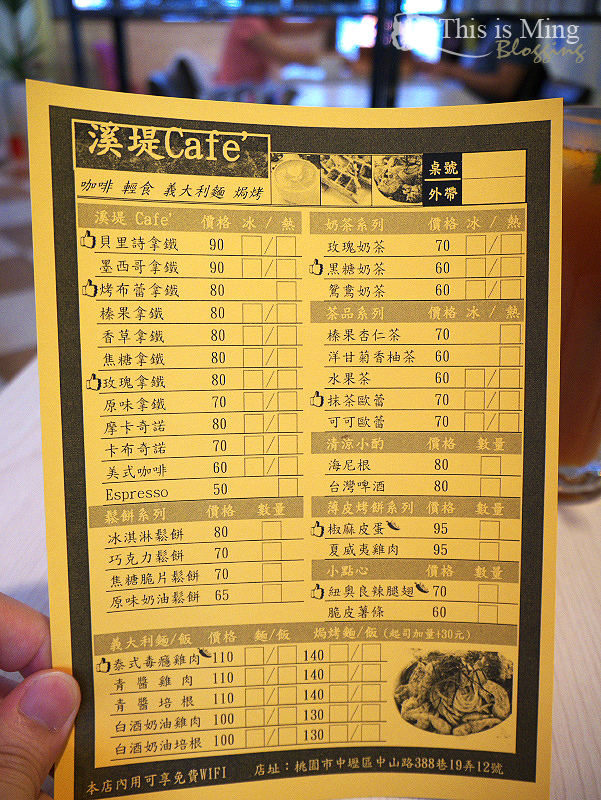 This is Ming
Blogging
溪堤Cafe'
咖啡 輕食 義大利麵 焗烤
桌號
外帶
溪堤 Cafe' 價格 冰/熱
貝里詩拿鐵 90 /
墨西哥拿鐵 90 /
烤布蕾拿鐵 80
榛果拿鐵 80 /
香草拿鐵 80 /
焦糖拿鐵 80 /
玫瑰拿鐵 80 /
原味拿鐵 70 /
摩卡奇諾 80 /
卡布奇諾 70 /
美式咖啡 60 /
Espresso 50
鬆餅系列 價格 數量
冰淇淋鬆餅 80
巧克力鬆餅 70
焦糖脆片鬆餅 70
原味奶油鬆餅 65
奶茶系列 價格 冰/熱
玫瑰奶茶 70 /
黑糖奶茶 60 /
鴛鴦奶茶 60 /
茶品系列 價格 冰/熱
榛果杏仁茶 70
洋甘菊香柚茶 60
水果茶 60 /
抹茶歐蕾 70 /
可可歐蕾 70 /
清涼小酌 價格 數量
海尼根 80
台灣啤酒 80
薄皮烤餅系列 價格 數量
椒麻皮蛋 95
夏威夷雞肉 95
小點心 價格 數量
紐奧良辣腿翅 70
脆皮薯條 60
義大利麵/飯 價格 麵/飯 焗烤麵/飯 (起司加量+30元)
泰式毒癮雞肉 110 / 140 /
青醬雞肉 110 / 140 /
青醬培根 110 / 140 /
白酒奶油雞肉 100 / 130 /
白酒奶油培根 100 / 130 /
本店內用可享免費WIFI 店址：桃園市中壢區中山路388巷19弄12號